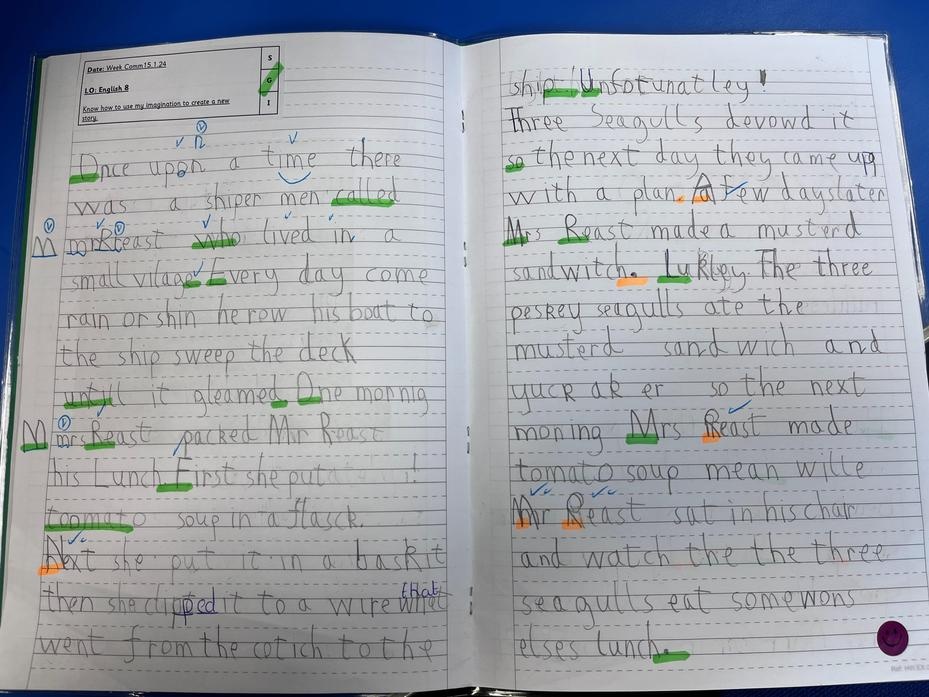 Date: Week Comm15.1.24
LO: English 8
Know how to use my imagination to create a new
story.
S
G
I
n
Once upon a time there
was a shiper men called
M mr Reast who lived in a
small vilage Every day come
rain or shin he row his boat to
the ship sweep the deck
untill it gleamed. One mornig
M mrs Reast packed Mr Reast
his Lunch First she put
toomato soup in a flasck.
Next she put it in a baskit
then she clipped it to a wire that
went from the cotich to the
ship Unfortunatley
Three Seagulls devowd it
so the next day they came upp
with a plan. A few days later
Mrs Reast made a musterd
sandwitch. Lukley. The three
peskey seagulls ate the
musterd sandwich and
yuck ak er so the next
moning Mrs Reast made
tomato soup mean wille
Mr Reast sat in his chair
and watch the the three
seagulls eat somewons
elses lunch.